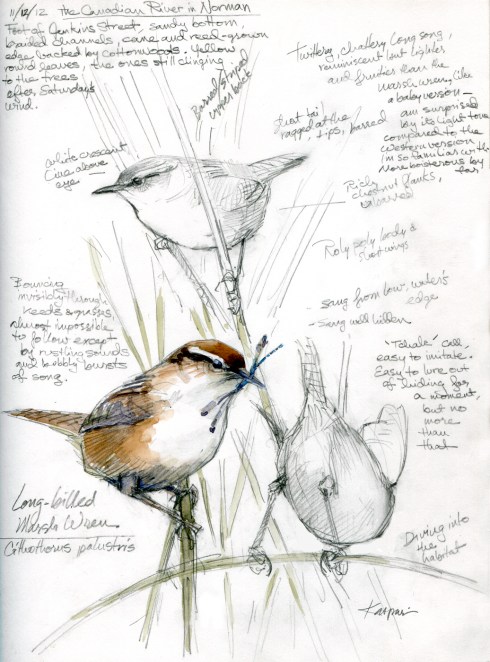 11/12/12 the Canadian River in Norman
Foot of Jenkins Street, sandy bottom,
braided channels, cane and reed-grown
edge backed by cottonwoods. Yellow
round leaves, the ones still clinging
to the trees
after Saturday's
wind.
Barred/striped
upper back
Twittery, chattery long song,
reminiscent but lighter
and finer than the
marsh wren, like
a baby version—
am surprised
by its light tone
compared to the
western version
I'm so familiar with
More boisterous by
far
short tail
ragged at the
tips, barred
white crescent
line above
eye
Rich
chestnut flanks,
unbarred
Roly poly body &
short wings
- sang from low, water's
edge
- Song well hidden
Bouncing
invisibly through
reeds & grasses,
almost impossible
to follow except
by rustling sounds
and bubbly bursts
of song.
"Tchak" call,
easy to imitate.
Easy to lure out
of hiding for
a moment,
but no
more
than
that
Long-billed
Marsh Wren
Cithothorus palustris
Diving into
the
habitat
Kaspari